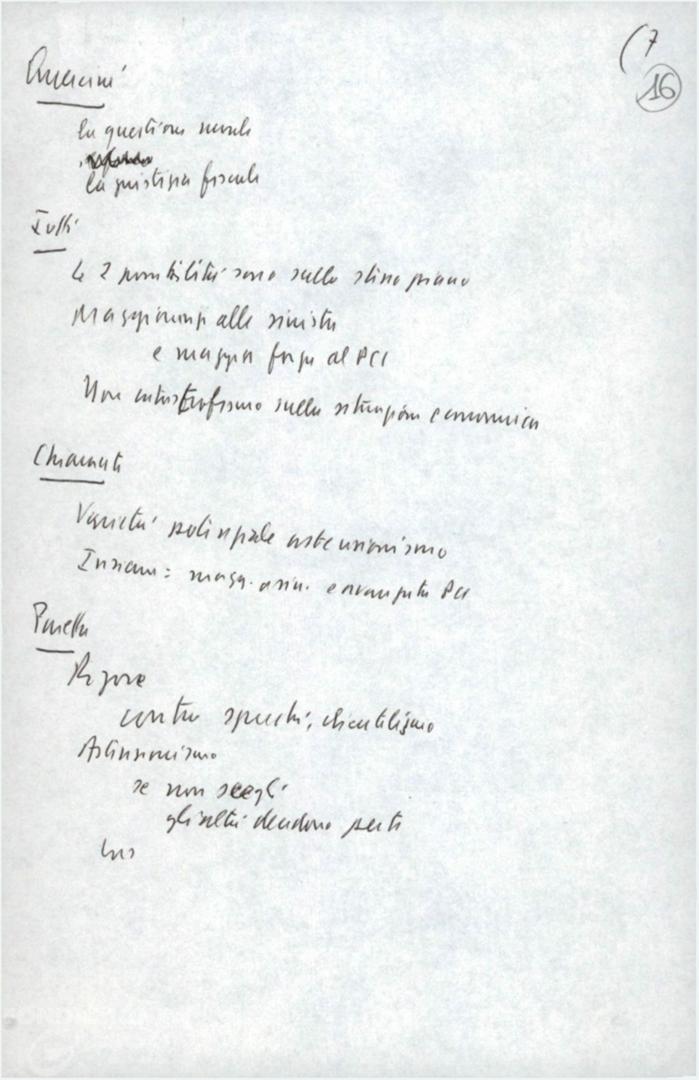 (7
16
Quercini
la questione morale
la giustizia fiscale
Tutti
Le 2 possibilità sono sullo stesso piano
Maggioranza alle sinistre
e maggior forza al PCI
Non catastrofismo sulla situazione economica
Chiamati
Varietà astensionismo
Insieme: magg. e avanzata PCI
Rigore
contro sprechi, clientelismo
Astensionismo
se non scegli
gli altri decidono per te